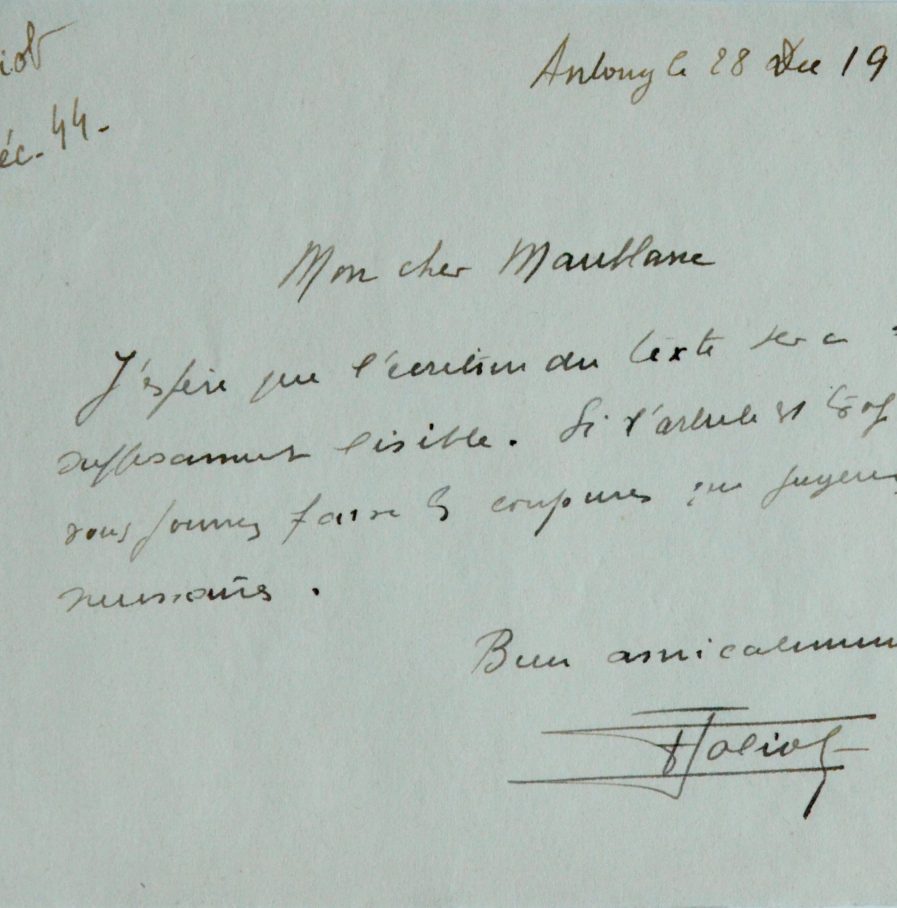 iot
éc. 44.
Antony le 28 Dec 19
Mon cher Maublanc
J'espère que l'écriture du texte sera
suffisamment lisible. Si l'article est trop
vous pouvez faire les coupures que jugerez
nécessaires.
Bien amicalement
F Joliot